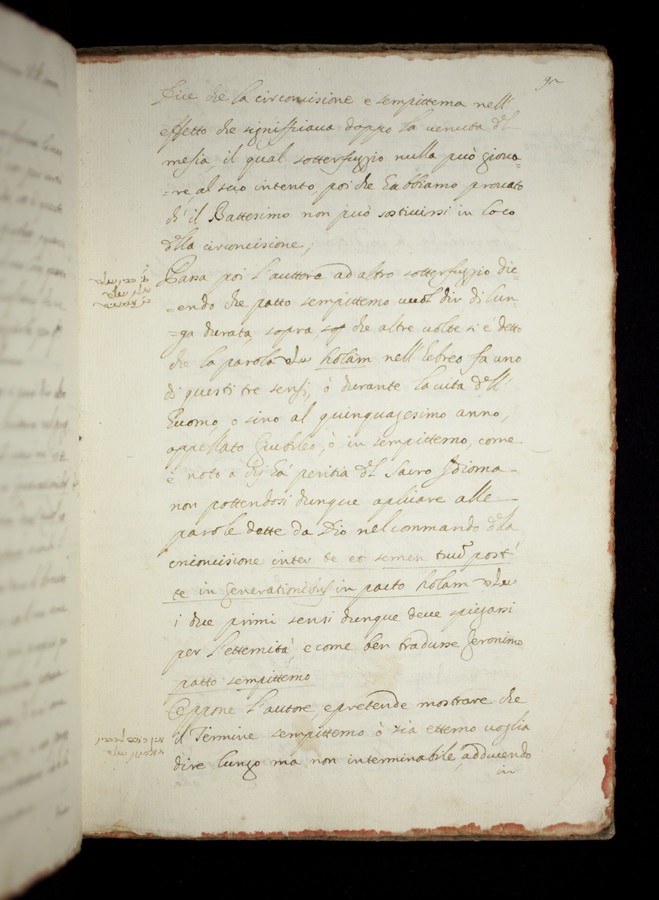 Dice che la circoncisione e sempiterna nell
effetto che signiffiava doppo la venuta del
mesia, il qual sotterfuggio nulla può giova=
=re, al suo intento, poi che habbiamo provato
che il Battesimo non può sostituirsi in loco
della circoncisione;
Passa poi l'auttore ad altro sotterfuggio dic=
=endo che patto sempitterno vuol dir di lun=
=ga durata, sopra che altre volte si è detto
che la parola עולם holàm nell'hebreo fa uno
di questi tre sensi, ò durante la vita dell'
huomo, o sino al quinquagesimo anno,
appellato Giubileo, ò in sempitterno, come
è noto a chi hà peritia del sacro Idioma
non pottendosi dunque aplicare alle
parole dette da Dio nel commando della
circoncisione inter te et semen tuum post
te in generationibus in pacto holàm עולם
i due primi sensi dunque deve spiegarsi
per l'etternità e come ben tradusse Geronimo
patto sempitterno
Oppone l'autore, e pretende mostrare che
il Termine sempitterno ò sia etterno voglia
dire lungo ma non interminabile, adducendo
in